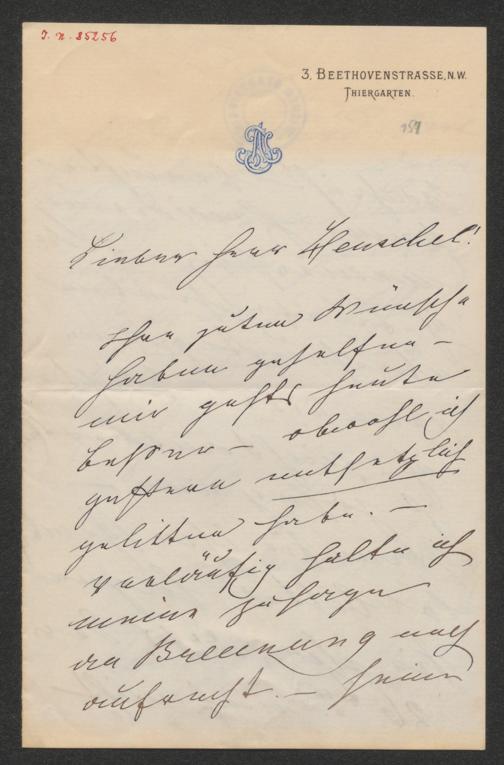 J. N. 85256
3, BEETHOVENSTRASSE, N.W.
THIERGARTEN.
151
Lieber Herr Henschel!
Ihre guten Wünsche
haben geholfen –
mir gehts heute
besser – obwohl ich
gestern entsetzlich
gelitten habe. –
Vorläufig halte ich
meine Zusage
an Brüning noch
aufrecht. –